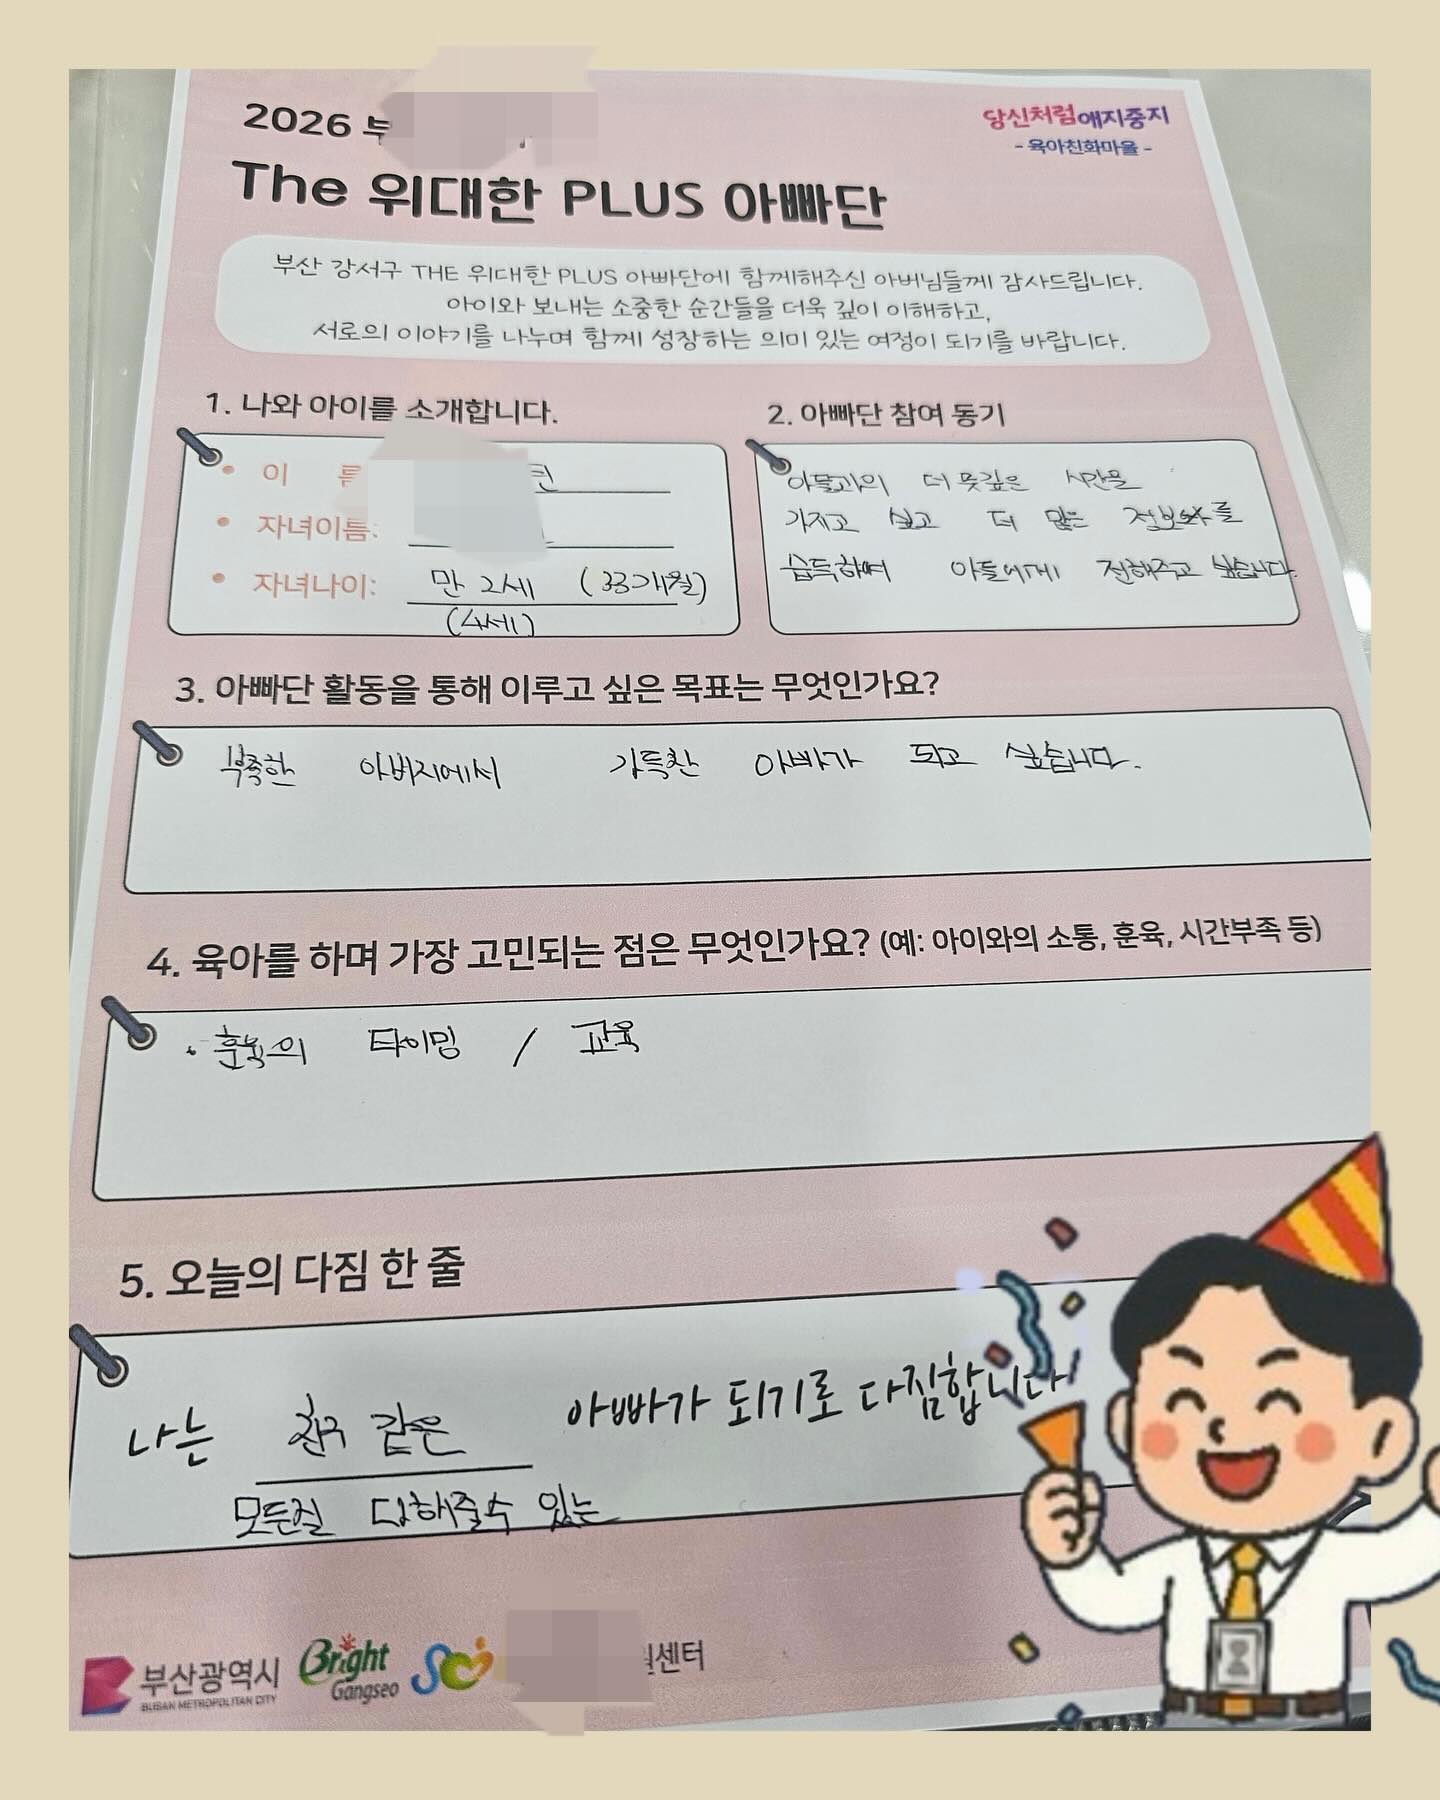 2026 부
당신처럼애지중지
- 육아친화마을 -
The 위대한 PLUS 아빠단
부산 강서구 THE 위대한 PLUS 아빠단에 함께해주신 아버님들께 감사드립니다.
아이와 보내는 소중한 순간들을 더욱 깊이 이해하고,
서로의 이야기를 나누며 함께 성장하는 의미 있는 여정이 되기를 바랍니다.
1. 나와 아이를 소개합니다.
• 이 름
• 자녀이름:
• 자녀나이: 만 2세 (33개월)
(4세)
2. 아빠단 참여 동기
아들과의 더 뜻깊은 시간을
가지고 싶고 더 많은 정보를
습득하여 아들에게 전해주고 싶습니다.
3. 아빠단 활동을 통해 이루고 싶은 목표는 무엇인가요?
부족한 아버지에서 가득찬 아빠가 되고 싶습니다.
4. 육아를 하며 가장 고민되는 점은 무엇인가요? (예: 아이와의 소통, 훈육, 시간부족 등)
• 훈육의 타이밍 / 교육
5. 오늘의 다짐 한 줄
나는 친구 같은 아빠가 되기로 다짐합니다!
모든걸 다해줄수 있는
부산광역시
BUSAN METROPOLITAN CITY
Bright
Gangseo
센터